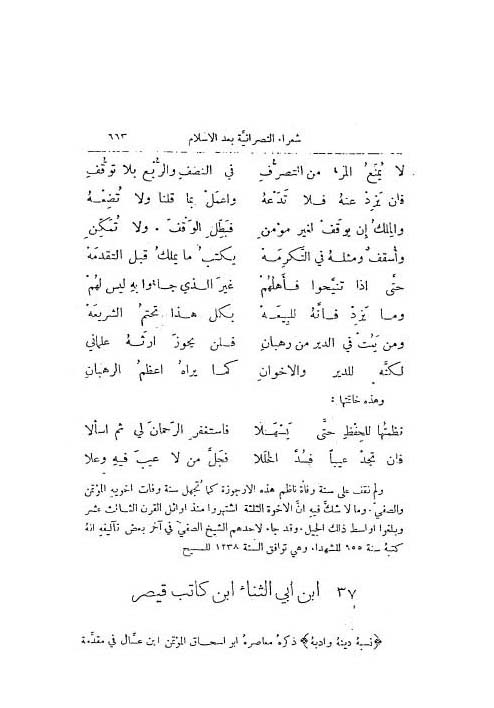 شعراء النصرانيَّة بعد الاسلام ٦٦٣
لا يُمنَعُ المرءُ من التصرُّف في النصف والرُّبع بلا توقُّف
فان يَزِدْ عنه فلا تَدَعْهُ واعمَلْ بما قلنا ولا تُضِعْهُ
والمِلكُ إن يوقَفْ لغير مؤمنِ فبَطِّلِ الوَقفَ ولا تُمَكِّنِ
وأسقفٌ ومثلهُ في التَّكرِمَهْ يكتبُ ما يملكُ قبل التقدمَهْ
حتَّى اذا تنيَّحوا فأهلُهُمْ غيرَ الذي جاءوا بهِ ليس لهُمْ
وما يَزِدْ فإنَّهُ للبِيعَهْ بكل هذا تحتمُ الشريعَهْ
ومن يَمُتْ في الدير من رهبانِ فلن يجوزَ ارثَهُ علماني
لكنَّه للدير والاخوانِ كما يراهُ اعظمُ الرهبانِ
وهذه خاتمتها :
نظمتُها للحِفْظِ حتَّى يَسْهُلَا فاستغفرِ الرَّحمانَ لي ثم اسألا
فان تجدْ عيباً فسُدَّ الخَلَلا فجَلَّ من لا عيبَ فيهِ وعلا
ولم نقف على سنة وفاة ناظم هذه الارجوزة كما تُجهل سنة وفات اخويهِ المؤتمن
والصفيّ. وما لا شكَّ فيهِ انَّ الاخوة الثلثة اشتهروا منذ اوائل القرن الثالث عشر
وبلغوا اواسط ذلك الجيل. وقد جاء لاحدهم الشيخ الصفيّ في آخر بعض تآليفهِ انهُ
كتبهُ سنة ٩٥٥ للشهداء وهي توافق السنة ١٢٣٨ للمسيح
٣٧ ابن ابي الثناء ابن كاتب قيصر
﴿نسبهُ دينهُ وادبهُ﴾ ذكرهُ معاصرهُ ابو اسحاق المؤتمن ابن عسَّال في مقدَّمة